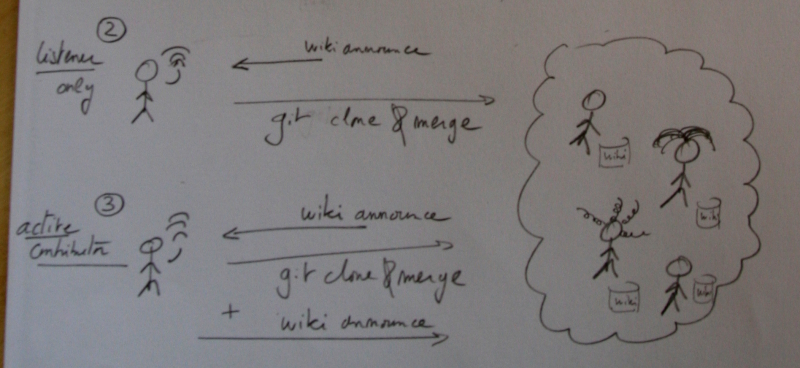 ②
listener
only
wiki announce
git clone & merge
wiki
wiki
③
active
contributor
wiki announce
git clone & merge
+ wiki announce
wiki
wiki